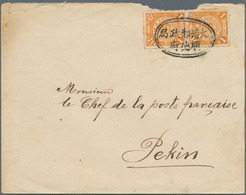 大清郵政局
Monsieur
le Chef de la poste française
Pékin